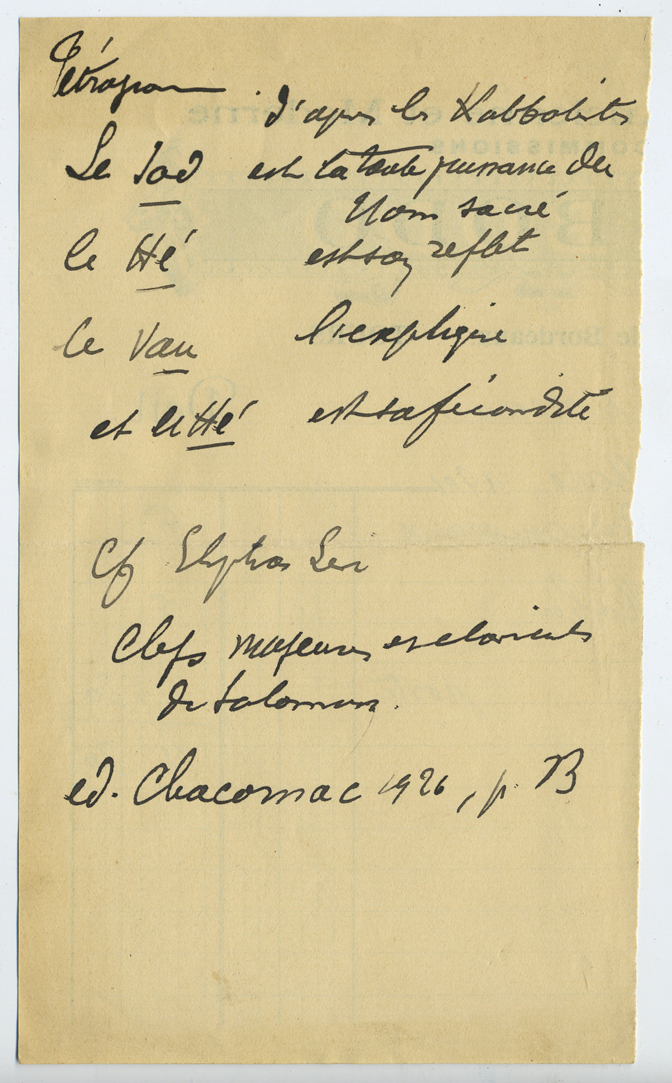 Tétragram d'après les Kabbalistes
Le Iod est la toute puissance du
Nom sacré
le Hé est son reflet
le Vau l'explique
et le Hé est sa fécondité
Cf Elyphas Levi
Clefs majeures et clavicules
de Salomon.
ed. Chacornac 1926, p.